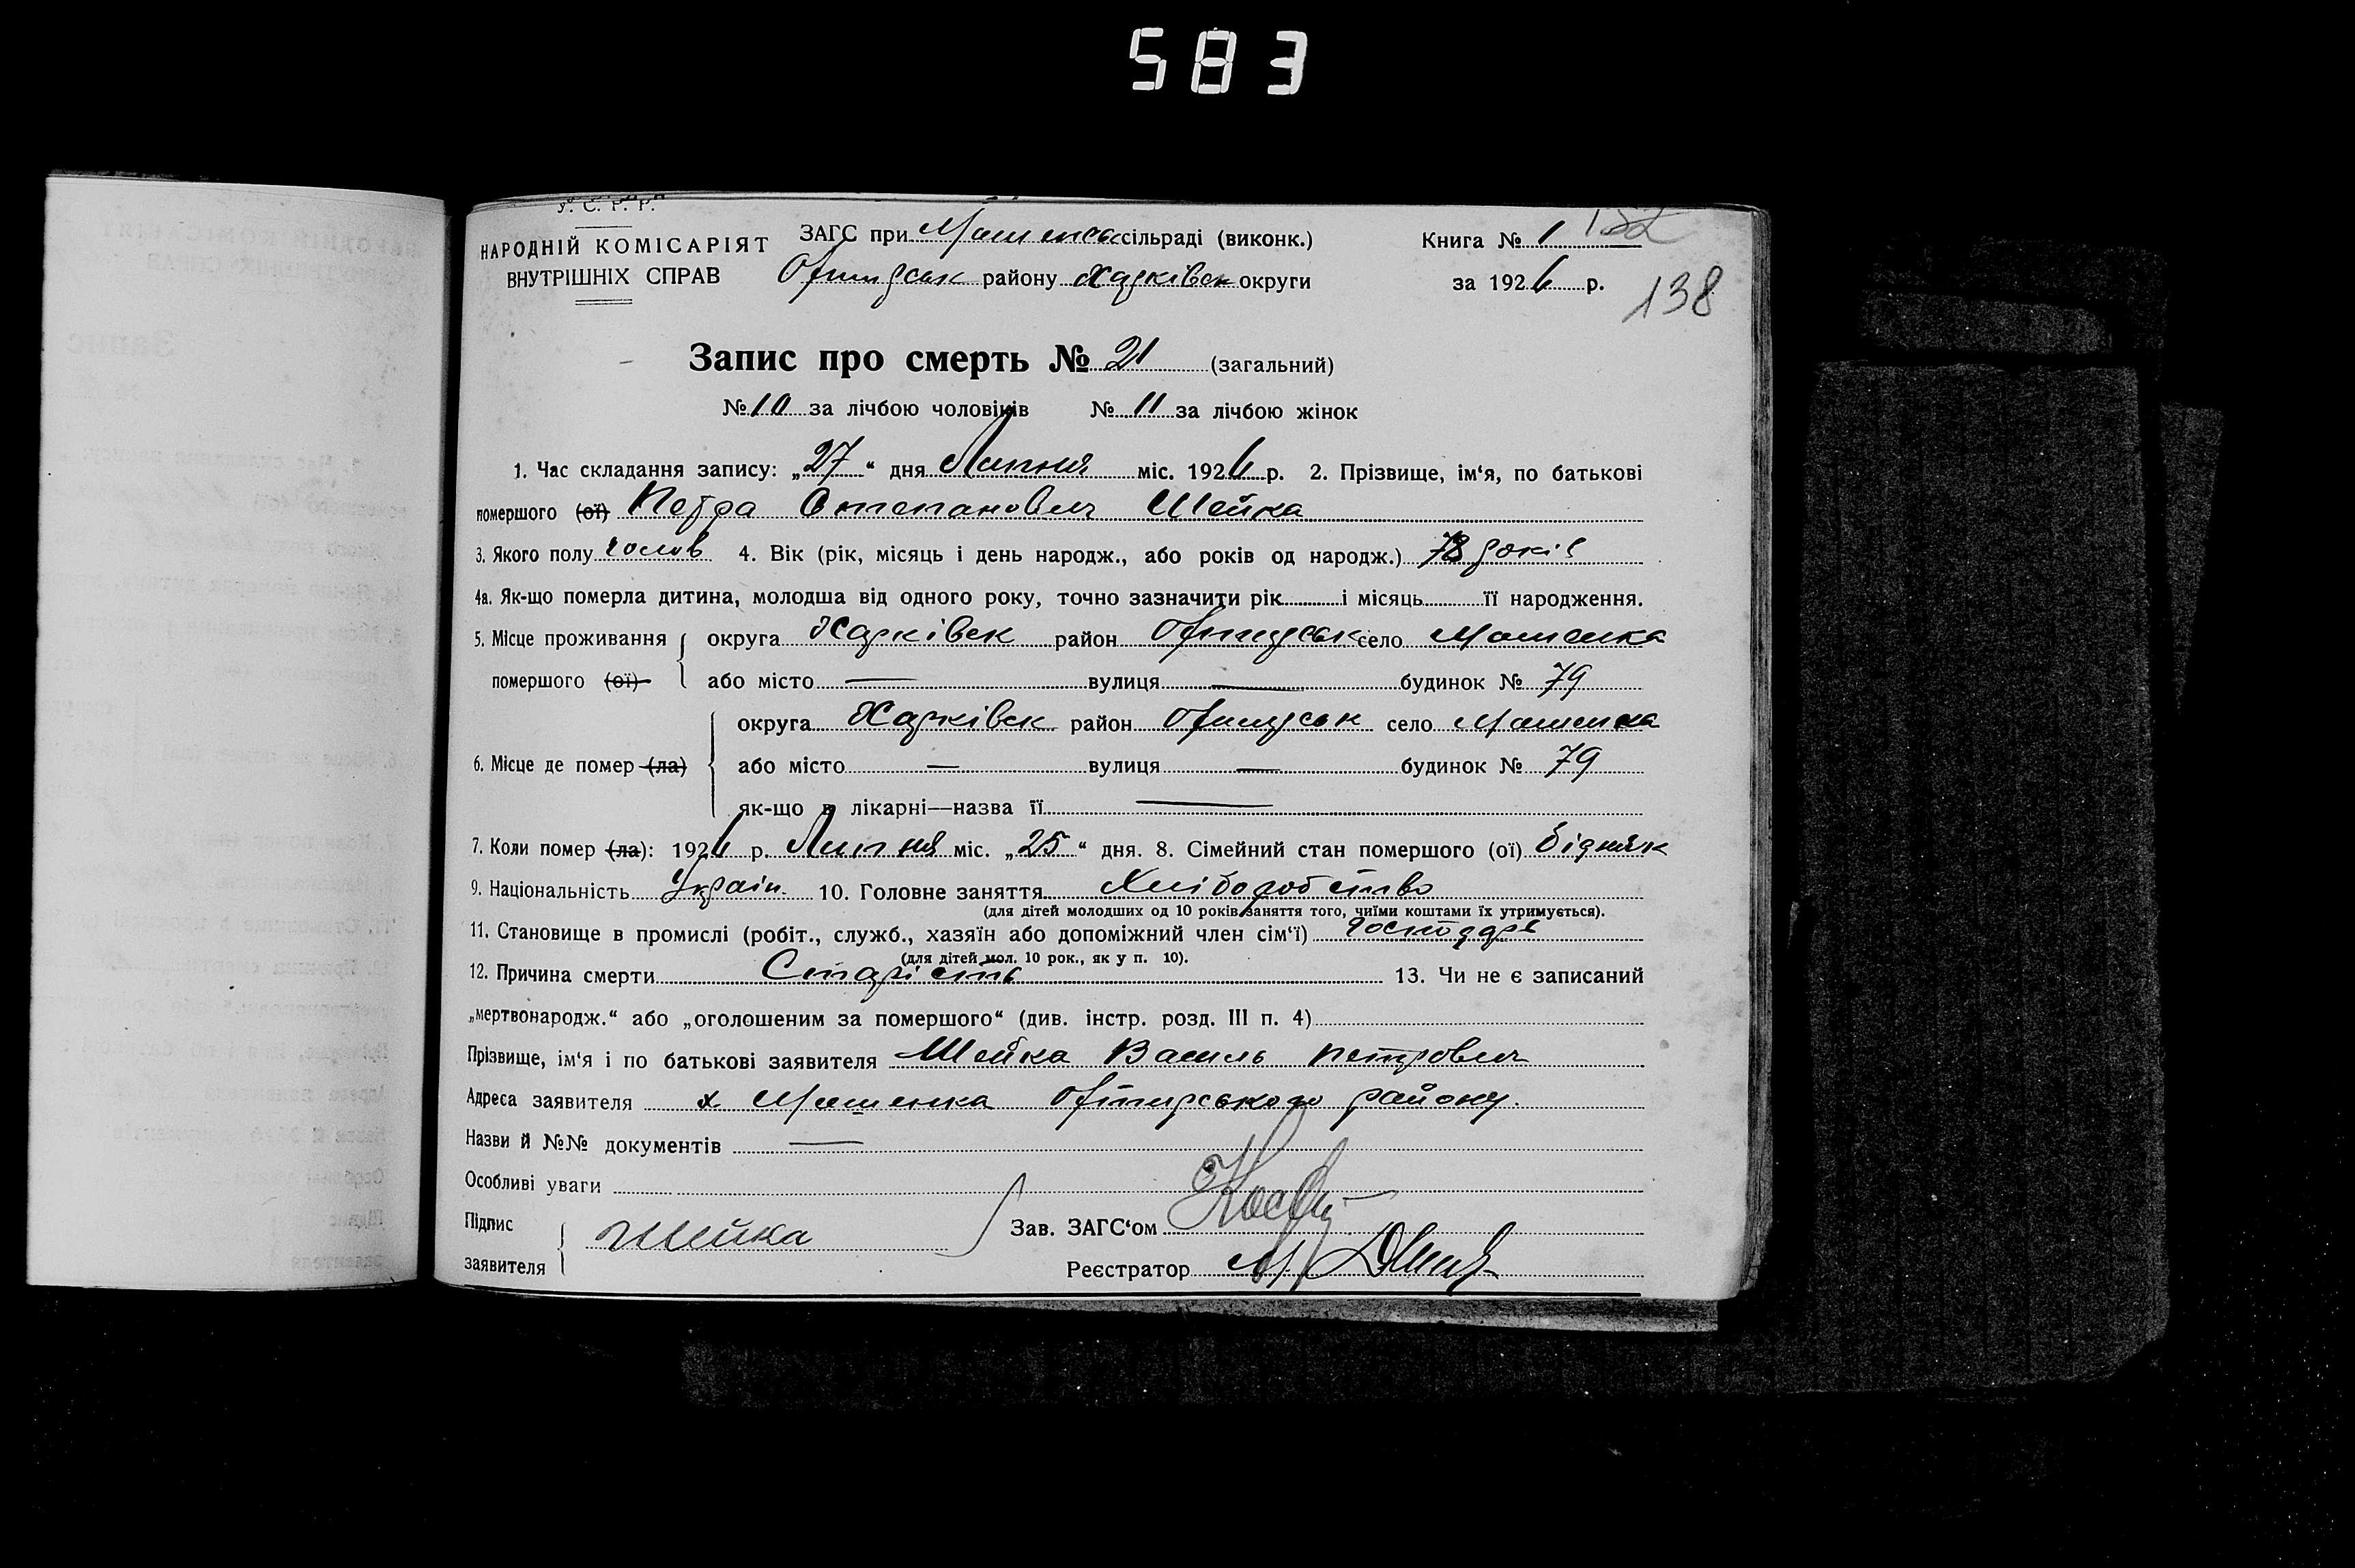 583
У. С. Р. Р.
НАРОДНІЙ КОМІСАРІЯТ
ВНУТРІШНІХ СПРАВ
ЗАГС при сільраді (виконк.)
району Харківськ округи
Книга № 1 132
за 1926 р. 138
Запис про смерть № 21 (загальний)
№ 10 за лічбою чоловіків № 11 за лічбою жінок
1. Час складання запису: „27“ дня Липня міс. 1926 р. 2. Прізвище, ім‘я, по батькові
помершого (ої) Петра Степанович Шейка
3. Якого полу чолов 4. Вік (рік, місяць і день народж., або років од народж.) 78 років
4а. Як-що померла дитина, молодша від одного року, точно зазначити рік і місяць її народження.
5. Місце проживання округа Харківськ район село Мошенка
помершого (ої) або місто — вулиця — будинок № 79
округа Харківськ район село Мошенка
6. Місце де помер (ла) або місто — вулиця — будинок № 79
як-що в лікарні—назва її —
7. Коли помер (ла): 1926 р. Липня міс. „25“ дня. 8. Сімейний стан помершого (ої) бідняк
9. Національність Україн. 10. Головне заняття Хліборобство
(для дітей молодших од 10 років заняття того, чиїми коштами їх утримується).
11. Становище в промислі (робіт., служб., хазяїн або допоміжний член сім‘ї) господарь
(для дітей мол. 10 рок., як у п. 10).
12. Причина смерти Старість 13. Чи не є записаний
„мертвонародж.“ або „оголошеним за помершого“ (див. інстр. розд. III п. 4)
Прізвище, ім‘я і по батькові заявителя Шейка Василь петрович
Адреса заявителя х. Мошенка району.
Назви й №№ документів —
Особливі уваги
Підпис
заявителя Шейка
Зав. ЗАГС‘ом
Реєстратор